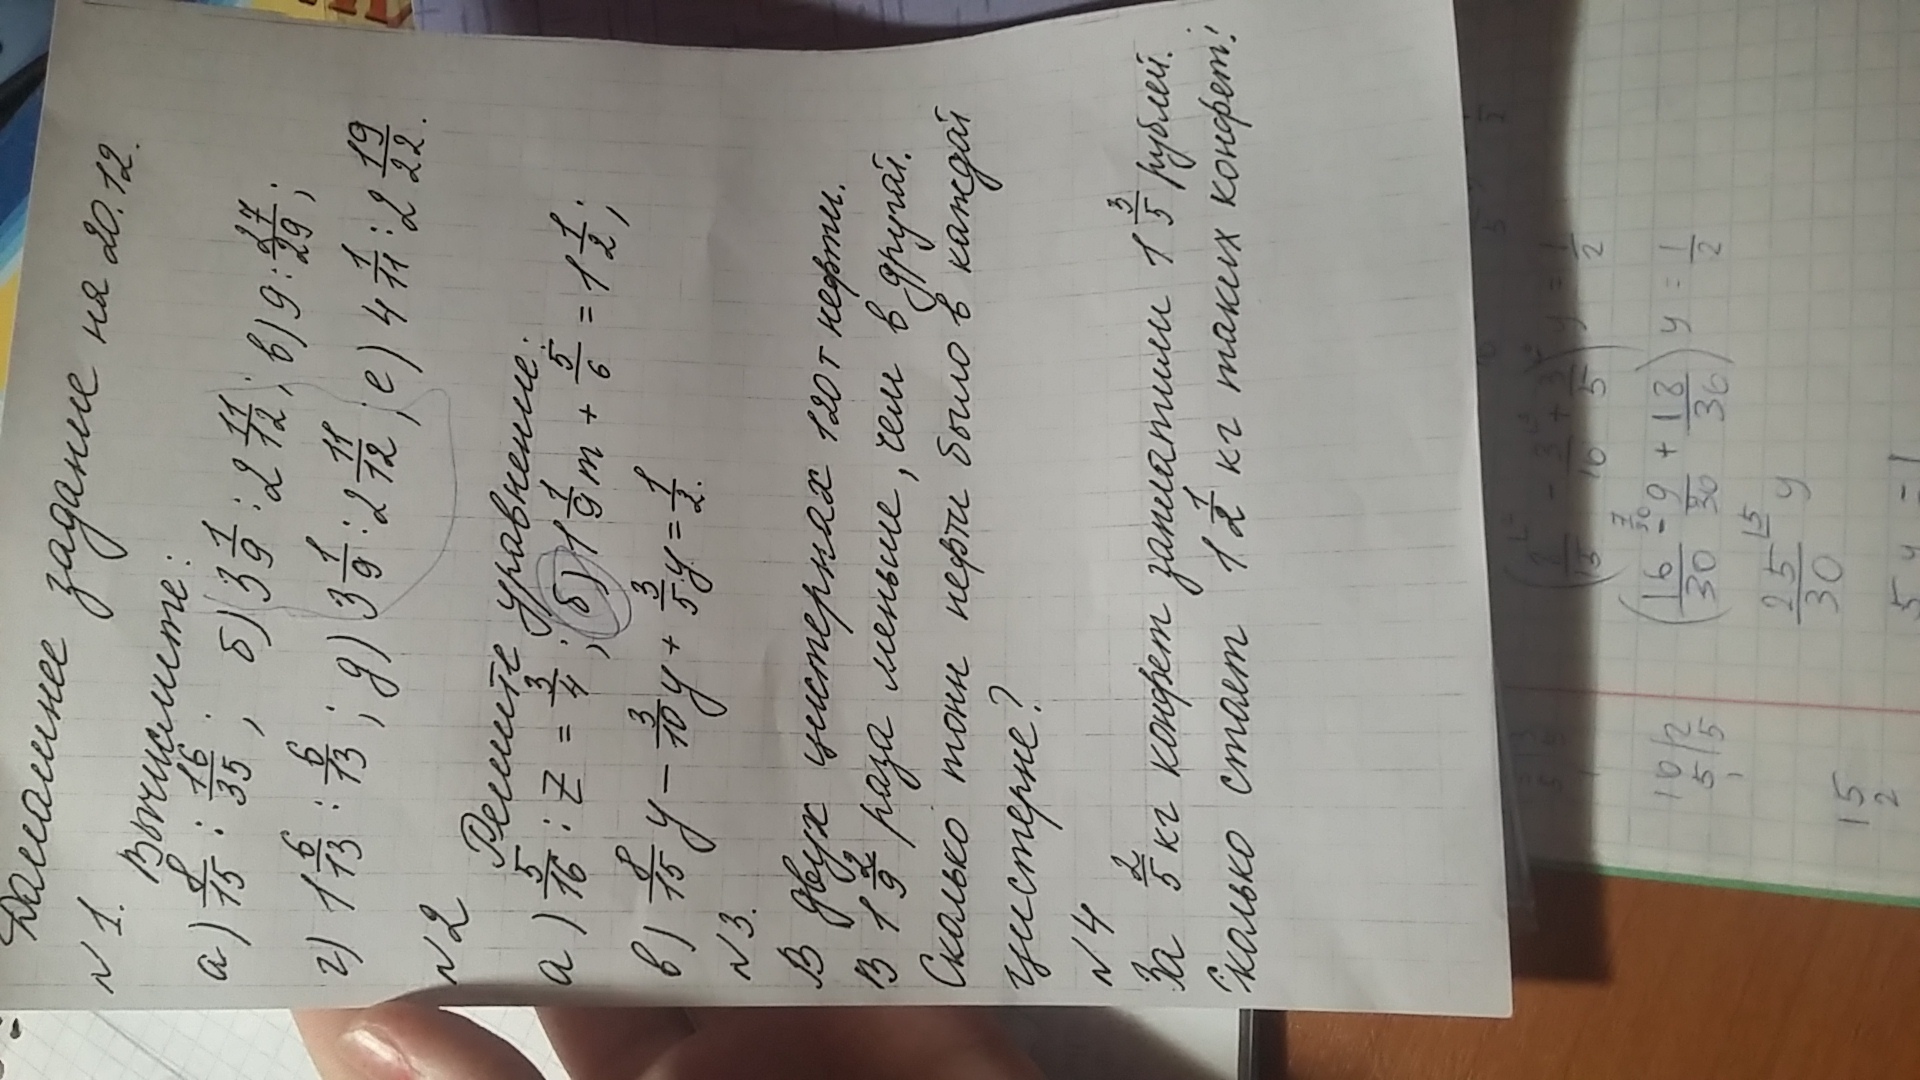 Домашнее задание на 20.12.
№1. Вычислите:
а) 8/15 : 16/35; б) 3 1/9 : 2 11/12; в) 9 : 27/29;
г) 1 6/13 : 6/13; д) 3 1/9 : 2 11/12; е) 4 1/11 : 2 19/22.
№2 Решите уравнение:
а) 5/16 : z = 3/4; б) 1 1/9 m + 5/6 = 1 1/2;
в) 8/15 y - 3/10 y + 3/5 y = 1/2.
№3.
В двух цистернах 120т нефти.
В 1 2/9 раза меньше, чем в другой.
Сколько тонн нефти было в каждой
цистерне?
№4
За 2/5 кг конфет заплатили 1 3/5 рублей.
Сколько стает 1 1/2 кг таких конфет?
y = 1/2
(16/30 - 9/30 + 18/30) y = 1/2
25/30 y
10/2
5/5
1
15
2